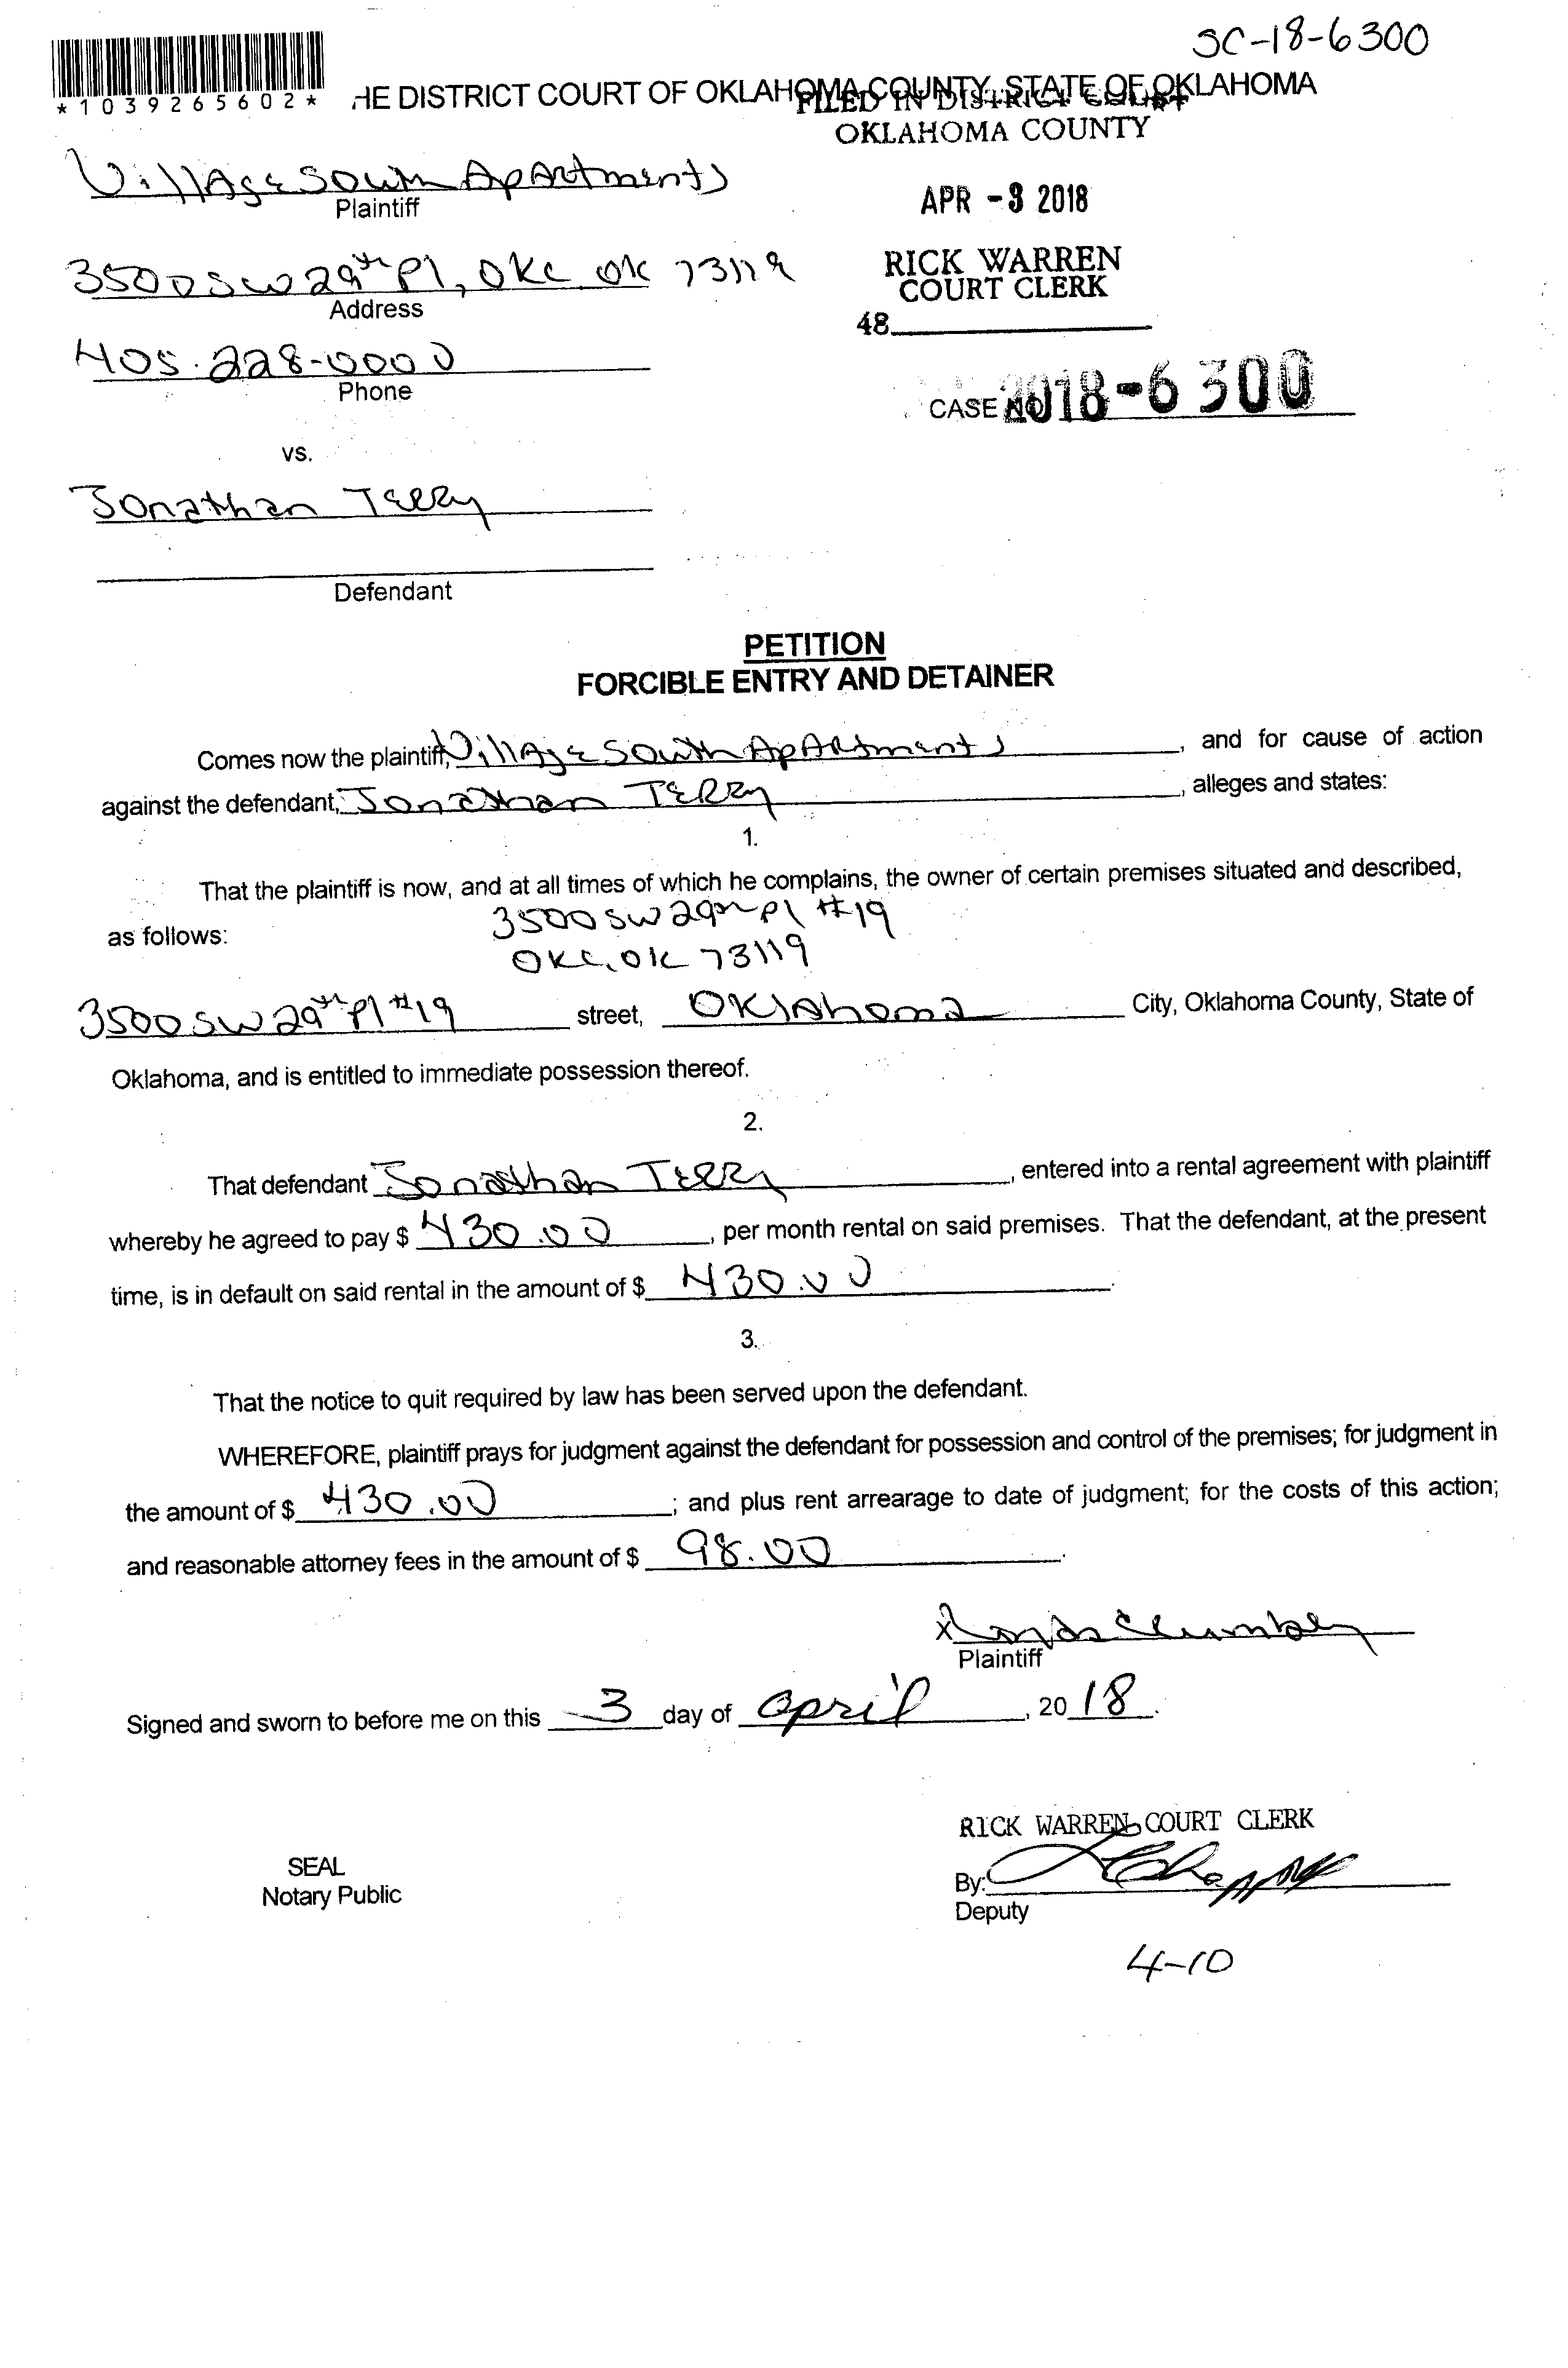 SC-18-6300
*1039265602*
HE DISTRICT COURT OF OKLAHOMA COUNTY, STATE OF OKLAHOMA
FILED IN DISTRICT COURT
OKLAHOMA COUNTY
Village South Apartments
Plaintiff
APR -3 2018
3500 SW 29th Pl, OKC OK 73119
Address
RICK WARREN
COURT CLERK
48
405.228-0000
Phone
CASE NO. 2018-6300
vs.
Jonathan Terry
Defendant
PETITION
FORCIBLE ENTRY AND DETAINER
Comes now the plaintiff, Village South Apartments, and for cause of action
against the defendant, Jonathan Terry, alleges and states:
1.
That the plaintiff is now, and at all times of which he complains, the owner of certain premises situated and described,
as follows: 3500 SW 29th Pl #19
OKC, OK 73119
3500 SW 29th Pl #19 street, Oklahoma City, Oklahoma County, State of
Oklahoma, and is entitled to immediate possession thereof.
2.
That defendant Jonathan Terry, entered into a rental agreement with plaintiff
whereby he agreed to pay $ 430.00, per month rental on said premises. That the defendant, at the present
time, is in default on said rental in the amount of $ 430.00.
3.
That the notice to quit required by law has been served upon the defendant.
WHEREFORE, plaintiff prays for judgment against the defendant for possession and control of the premises; for judgment in
the amount of $ 430.00; and plus rent arrearage to date of judgment; for the costs of this action;
and reasonable attorney fees in the amount of $ 98.00.
X
Plaintiff
Signed and sworn to before me on this 3 day of april, 2018.
RICK WARREN COURT CLERK
SEAL
Notary Public
By:
Deputy
4-10